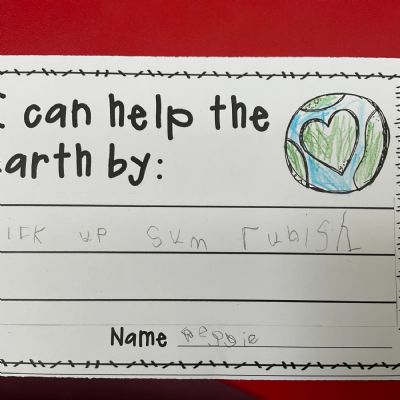 I can help the
earth by:
ick up sum rubish
Name peggie